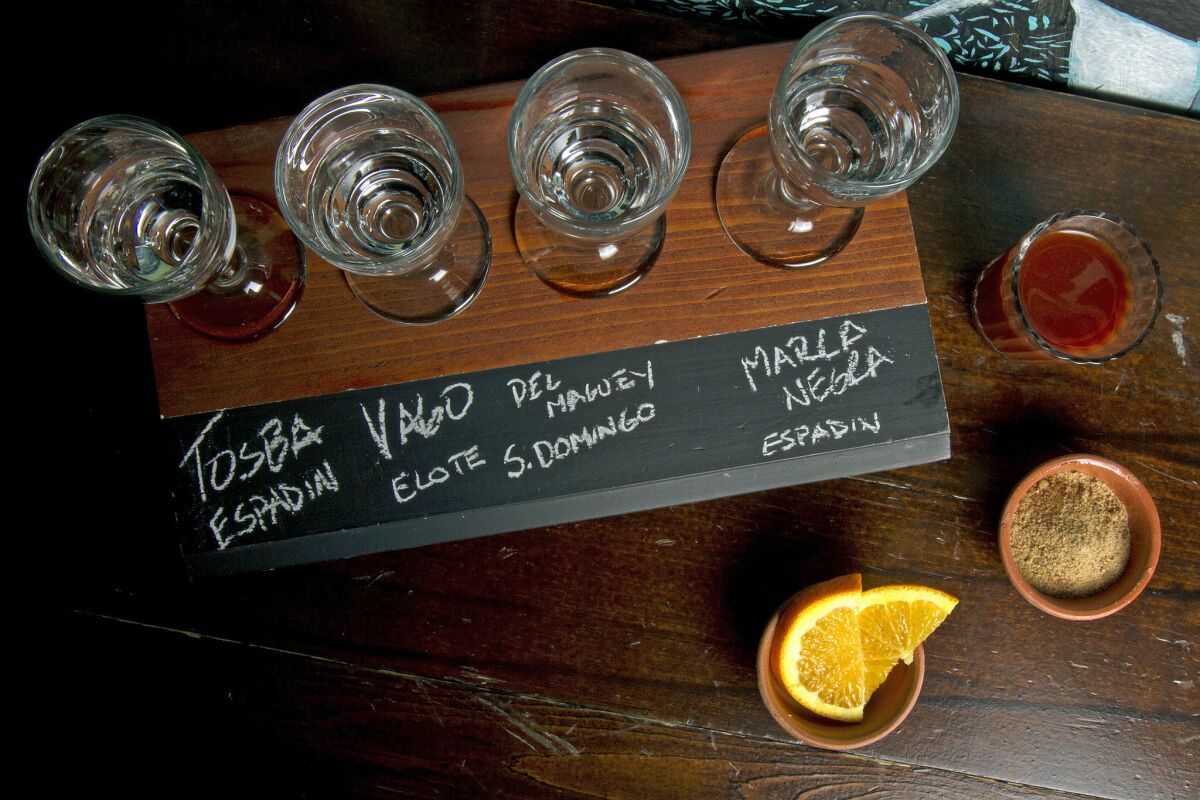 TOSBA
ESPADIN
VAGO
ELOTE
DEL
MAGUEY
S. DOMINGO
MARCA
NEGRA
ESPADIN